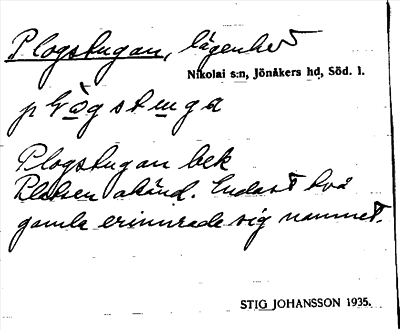 Plogstugan, lägenhet
Nikolai s:n, Jönåkers hd, Söd. l.
Plogstugan bek
Platsen okänd. Endast två
gamla erinnrade sig namnet.
STIG JOHANSSON 1935.